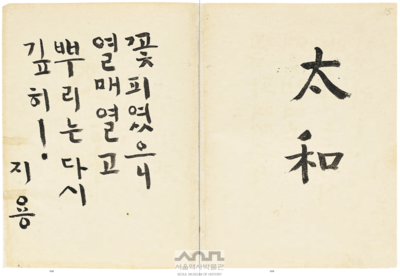 太和
꽃피였으니
열매열고
뿌리는다시
깊히!
지용
서울역사박물관
SEOUL MUSEUM OF HISTORY